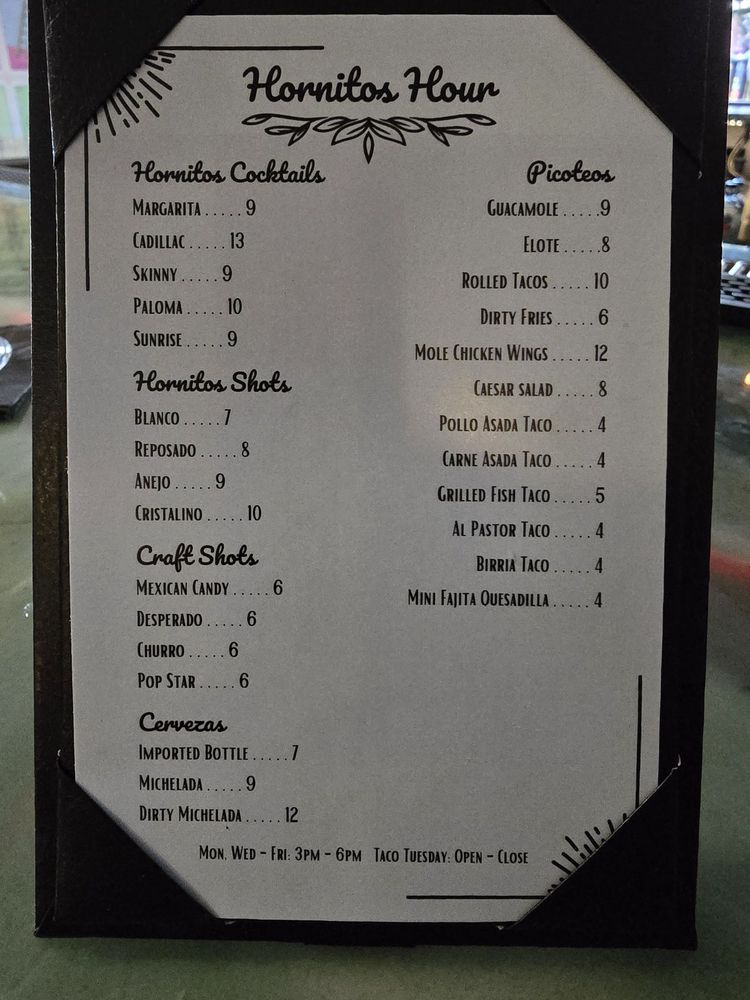 Hornitos Hour
Hornitos Cocktails
Margarita.....9
Cadillac.....13
Skinny.....9
Paloma.....10
Sunrise.....9
Hornitos Shots
Blanco.....7
Reposado.....8
Anejo.....9
Cristalino.....10
Craft Shots
Mexican Candy.....6
Desperado.....6
Churro.....6
Pop Star.....6
Cervezas
Imported Bottle.....7
Michelada.....9
Dirty Michelada.....12
Picoteos
Guacamole.....9
Elote.....8
Rolled Tacos.....10
Dirty Fries.....6
Mole Chicken Wings.....12
Caesar salad.....8
Pollo Asada Taco.....4
Carne Asada Taco.....4
Grilled Fish Taco.....5
Al Pastor Taco.....4
Birria Taco.....4
Mini Fajita Quesadilla.....4
Mon, Wed - Fri: 3pm - 6pm Taco Tuesday: Open - Close